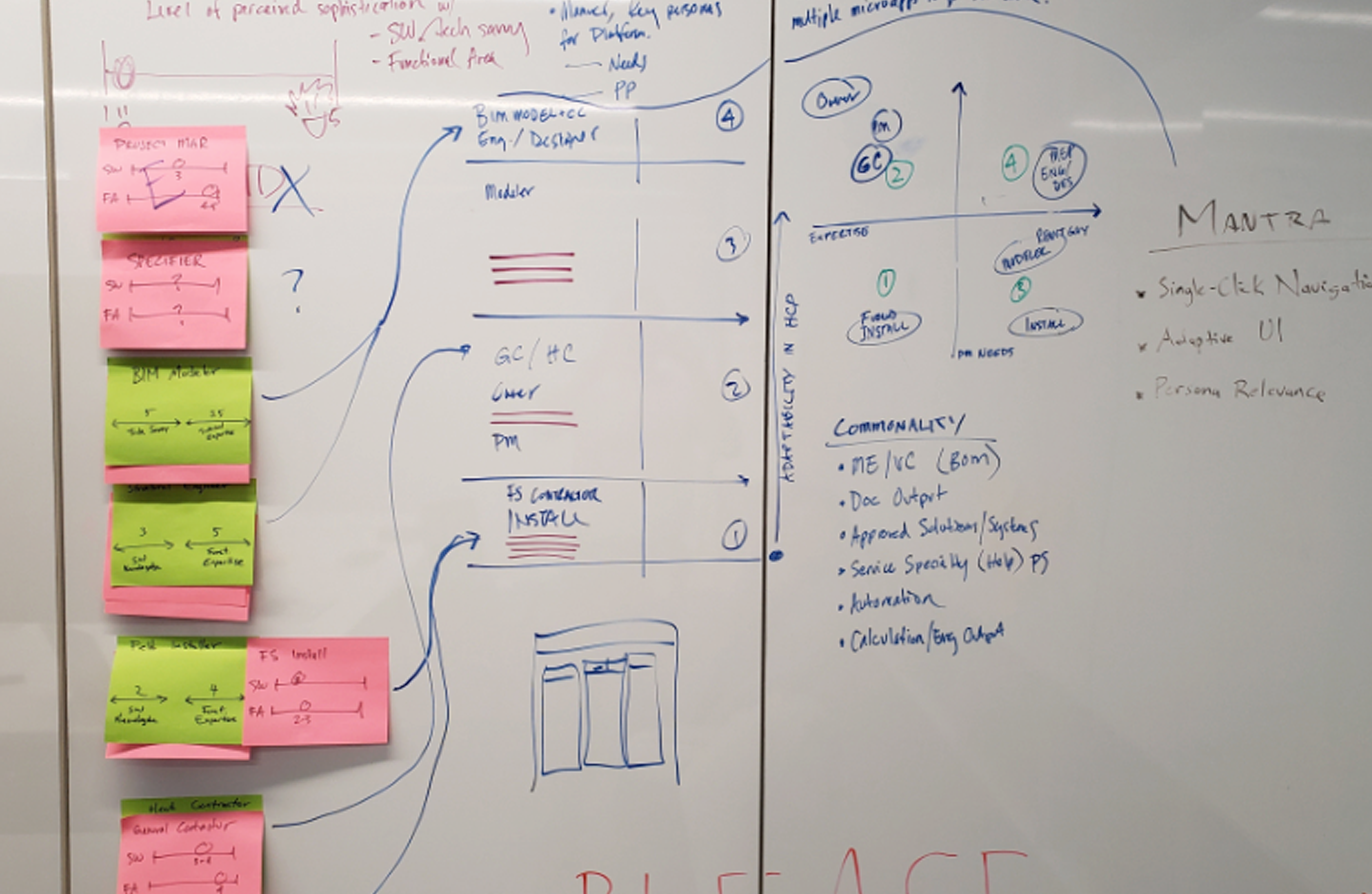 Level of perceived sophistication w/
- SW/tech savvy
- Functional Area
for Platform.
Needs
PP
5
PROJECT MAR
SW
3
FA
E
DX
SPECIFIER
SW ?
FA ?
?
BIM Modeler
5
Expertise
3
5
SW
Knowledge
Funct.
Expertise
Field Installer
2
4
SW
Knowledge
Funct.
Expertise
FS Install
SW
FA
2-3
Contractor
General Contractor
SW
3-4
FA
4
BIM MODEL
Eng / Designer
4
Modeler
3
GC / HC
Owner
2
PM
FS CONTRACTOR
INSTALL
1
multiple
ADAPTABILITY IN HCP
Owner
PM
GC
2
4
MEP
ENG/
DES
EXPERTISE
REVIT GUY
MODELER
1
3
INSTALL
INSTALL
PM NEEDS
COMMONALITY
• ME/VC (BOM)
• Doc Output
• Approved Solutions/Systems
• Service Specialty (Help) PS
• Automation
• Calculation/Eng Output
MANTRA
Single-Click Navigatio
Adaptive UI
Persona Relevance